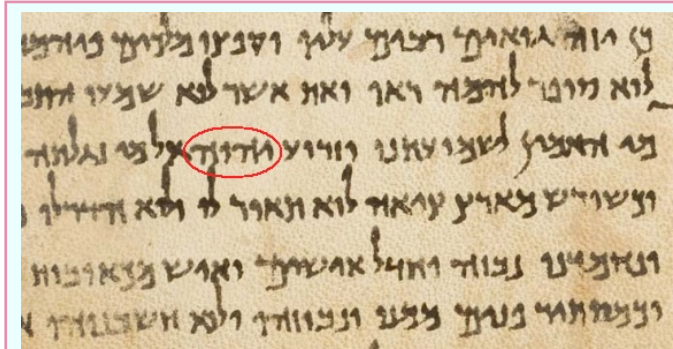 כן יזה גואים רבים עליו וקפצו מלכים
לוא סופר להמה ראו ואת אשר לוא שמעו
מי האמין לשמועתנו וזרוע יהוה אל מי נגלתה
וכשורש מארץ ציאה לוא תאור לו ולא הדר לו
ונחמדנו נבזה וחדל אישים ואיש מכאובות
וכמסתיר פנים ממנו ונבוזהו ולא חשבנוהו